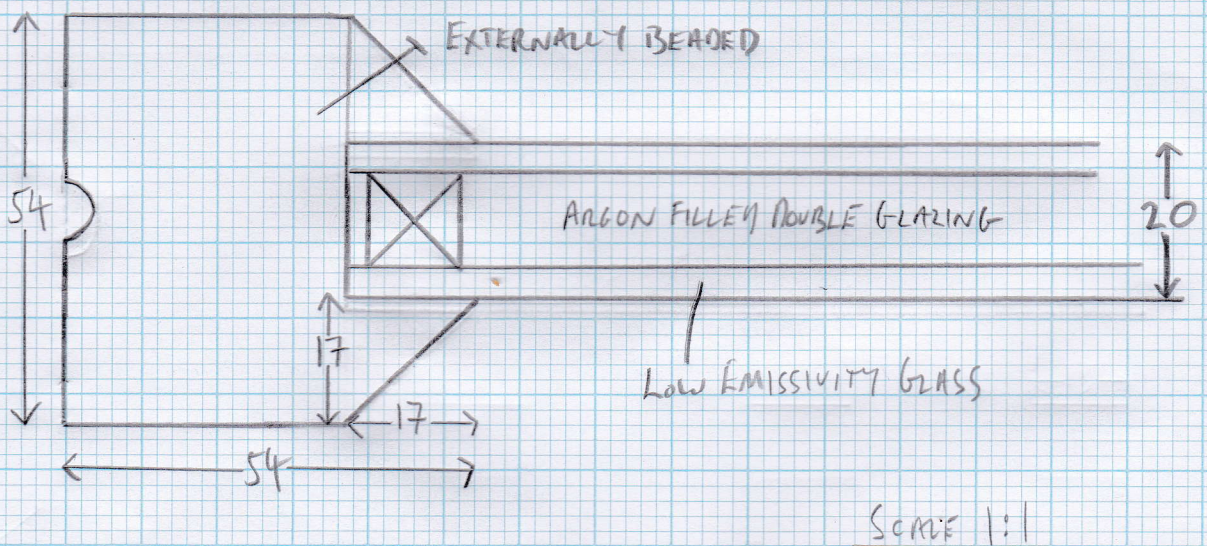 EXTERNALLY BEADED
54
ARGON FILLED DOUBLE GLAZING
20
17
LOW EMISSIVITY GLASS
17
54
SCALE 1:1